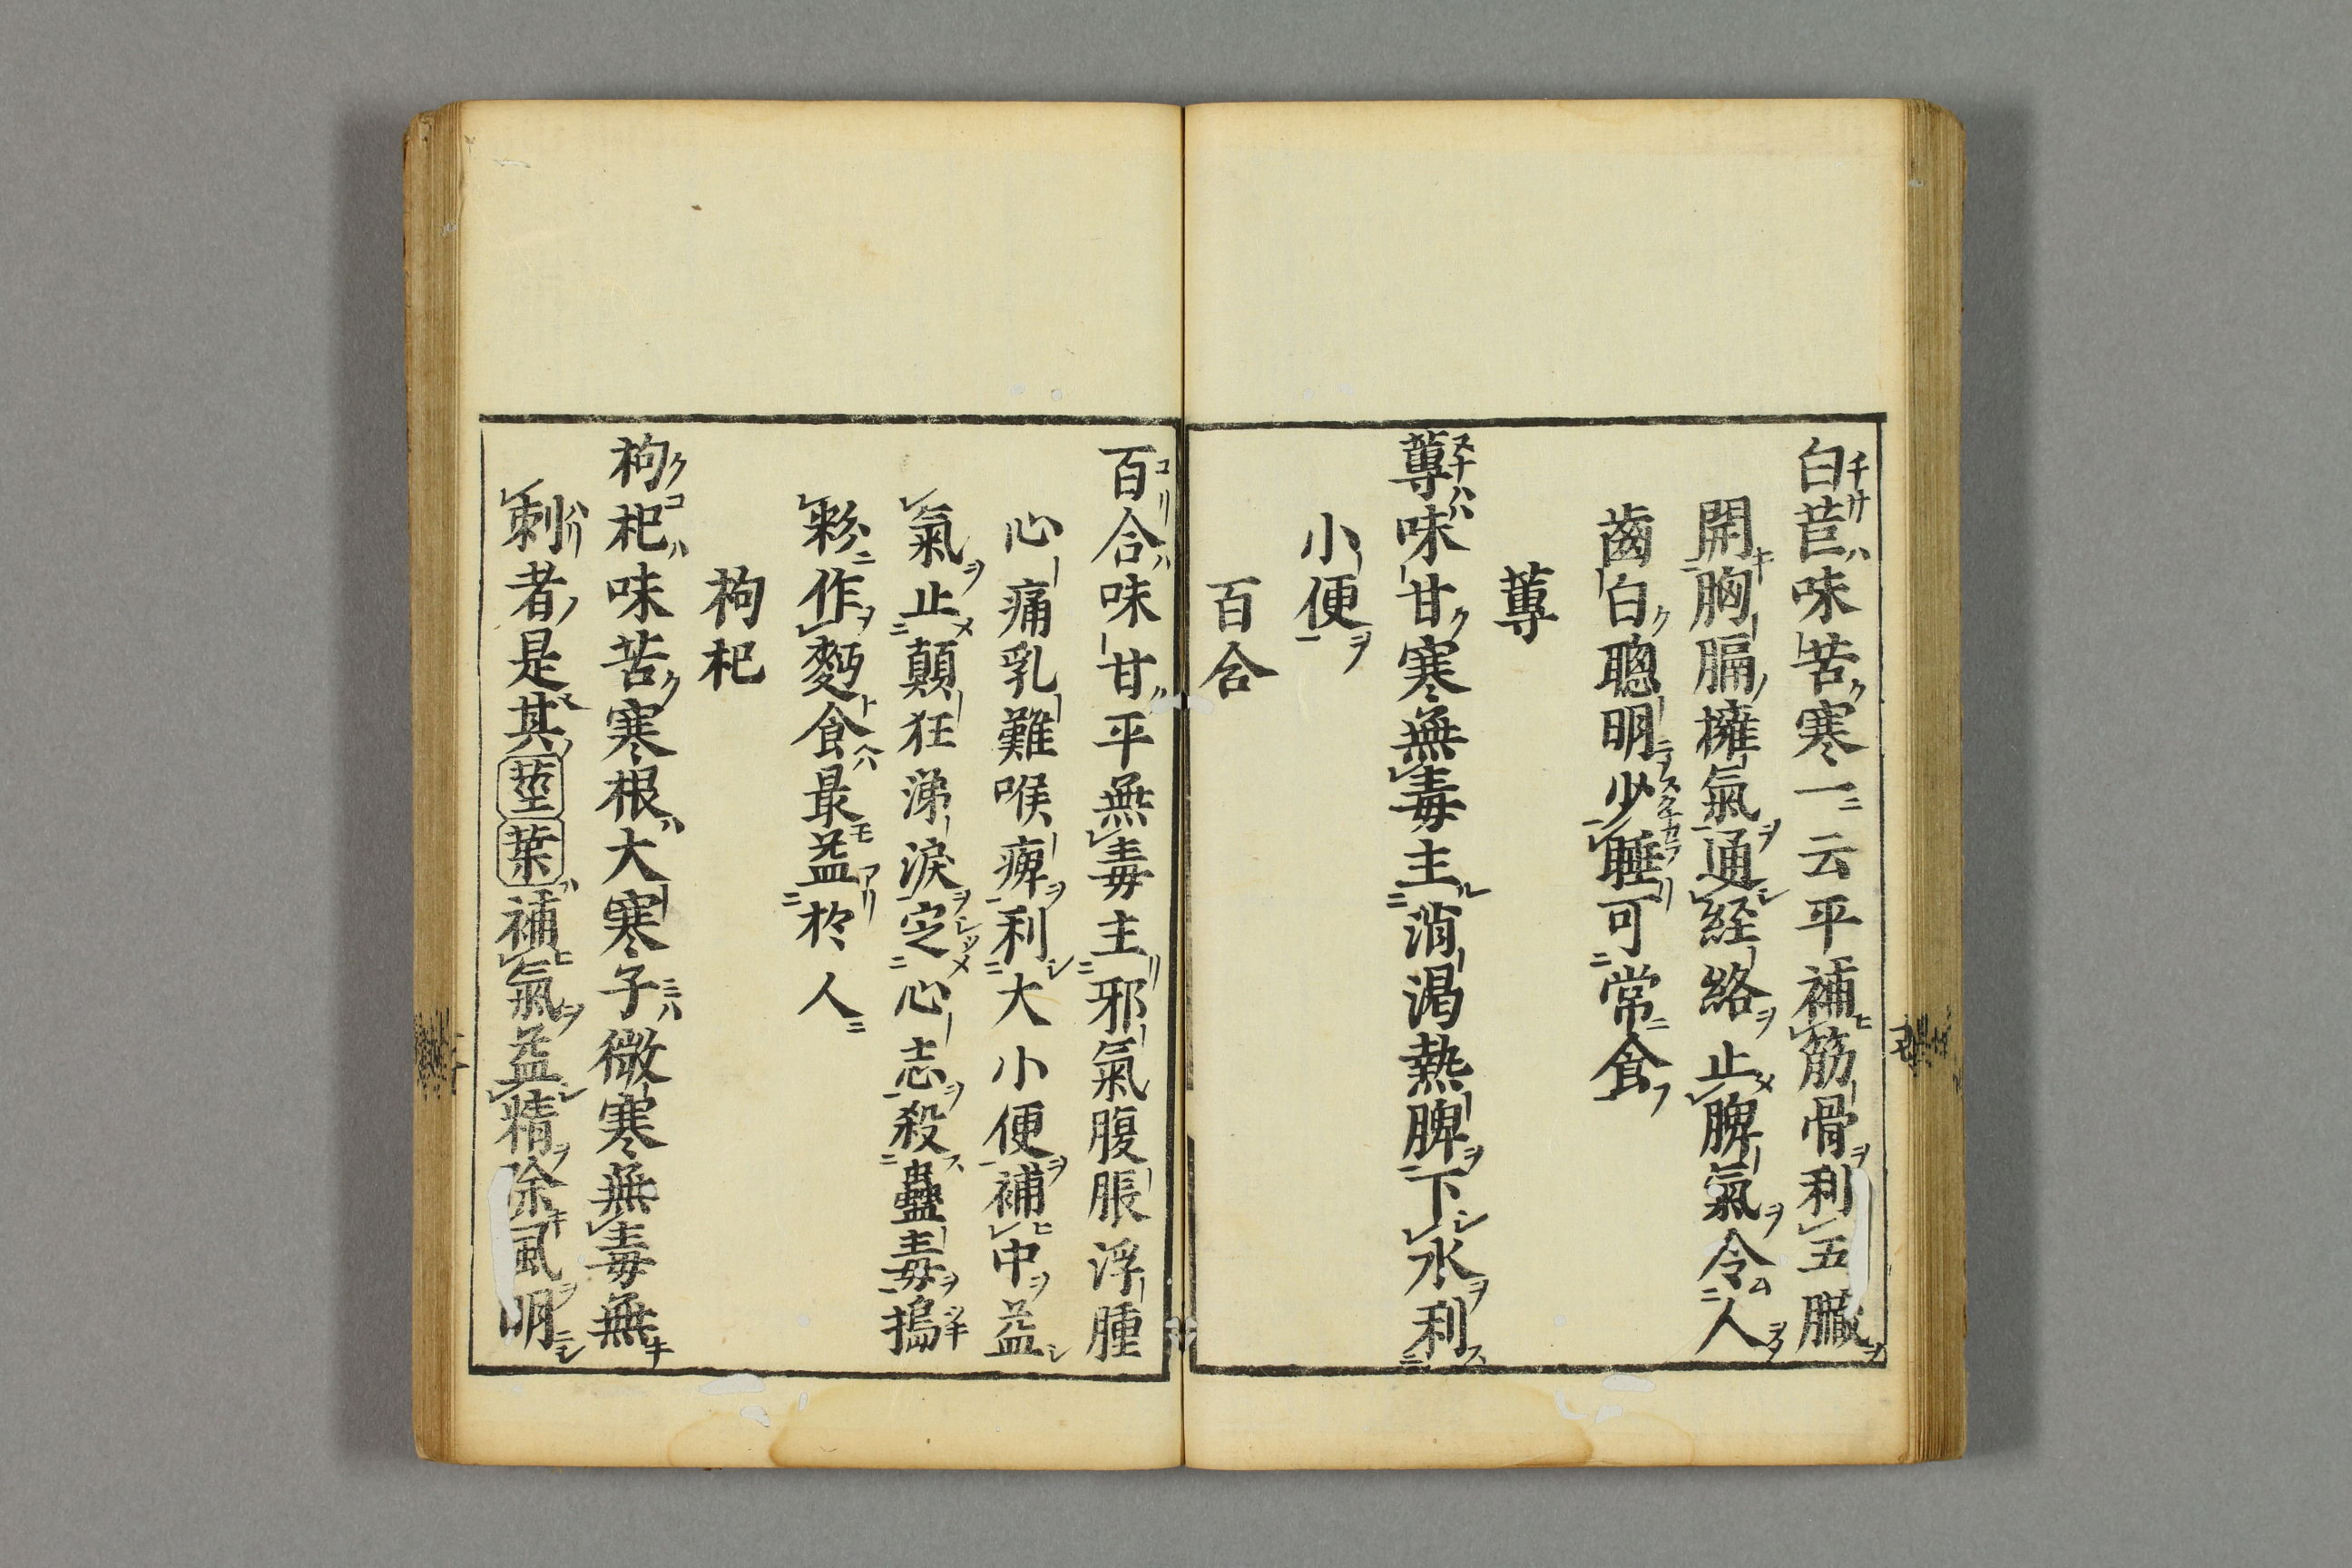 白苣味苦寒一云平補筋骨利五臓
開胸膈擁氣通経絡止脾氣令人
齒白聰明少睡可常食
蓴
蓴味甘寒無毒主消渇熱脾下水利
小便
百合
百合味甘平無毒主邪氣腹脹浮腫
心痛乳難喉痺利大小便補中益
氣止顛狂涕淚定心志殺蠱毒搗
粉作麪食最益於人
枸杞
枸杞味苦寒根大寒子微寒無毒無
刺者是其莖葉補氣益精除風明